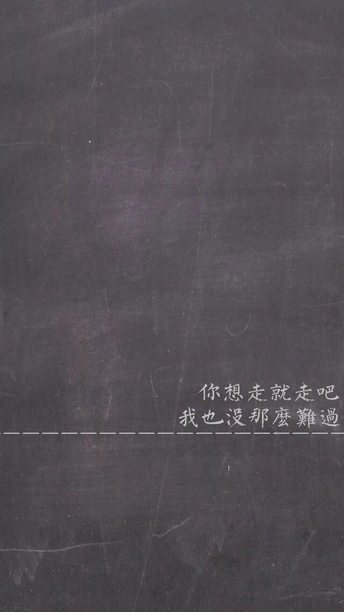 你想走就走吧
我也沒那麼難過